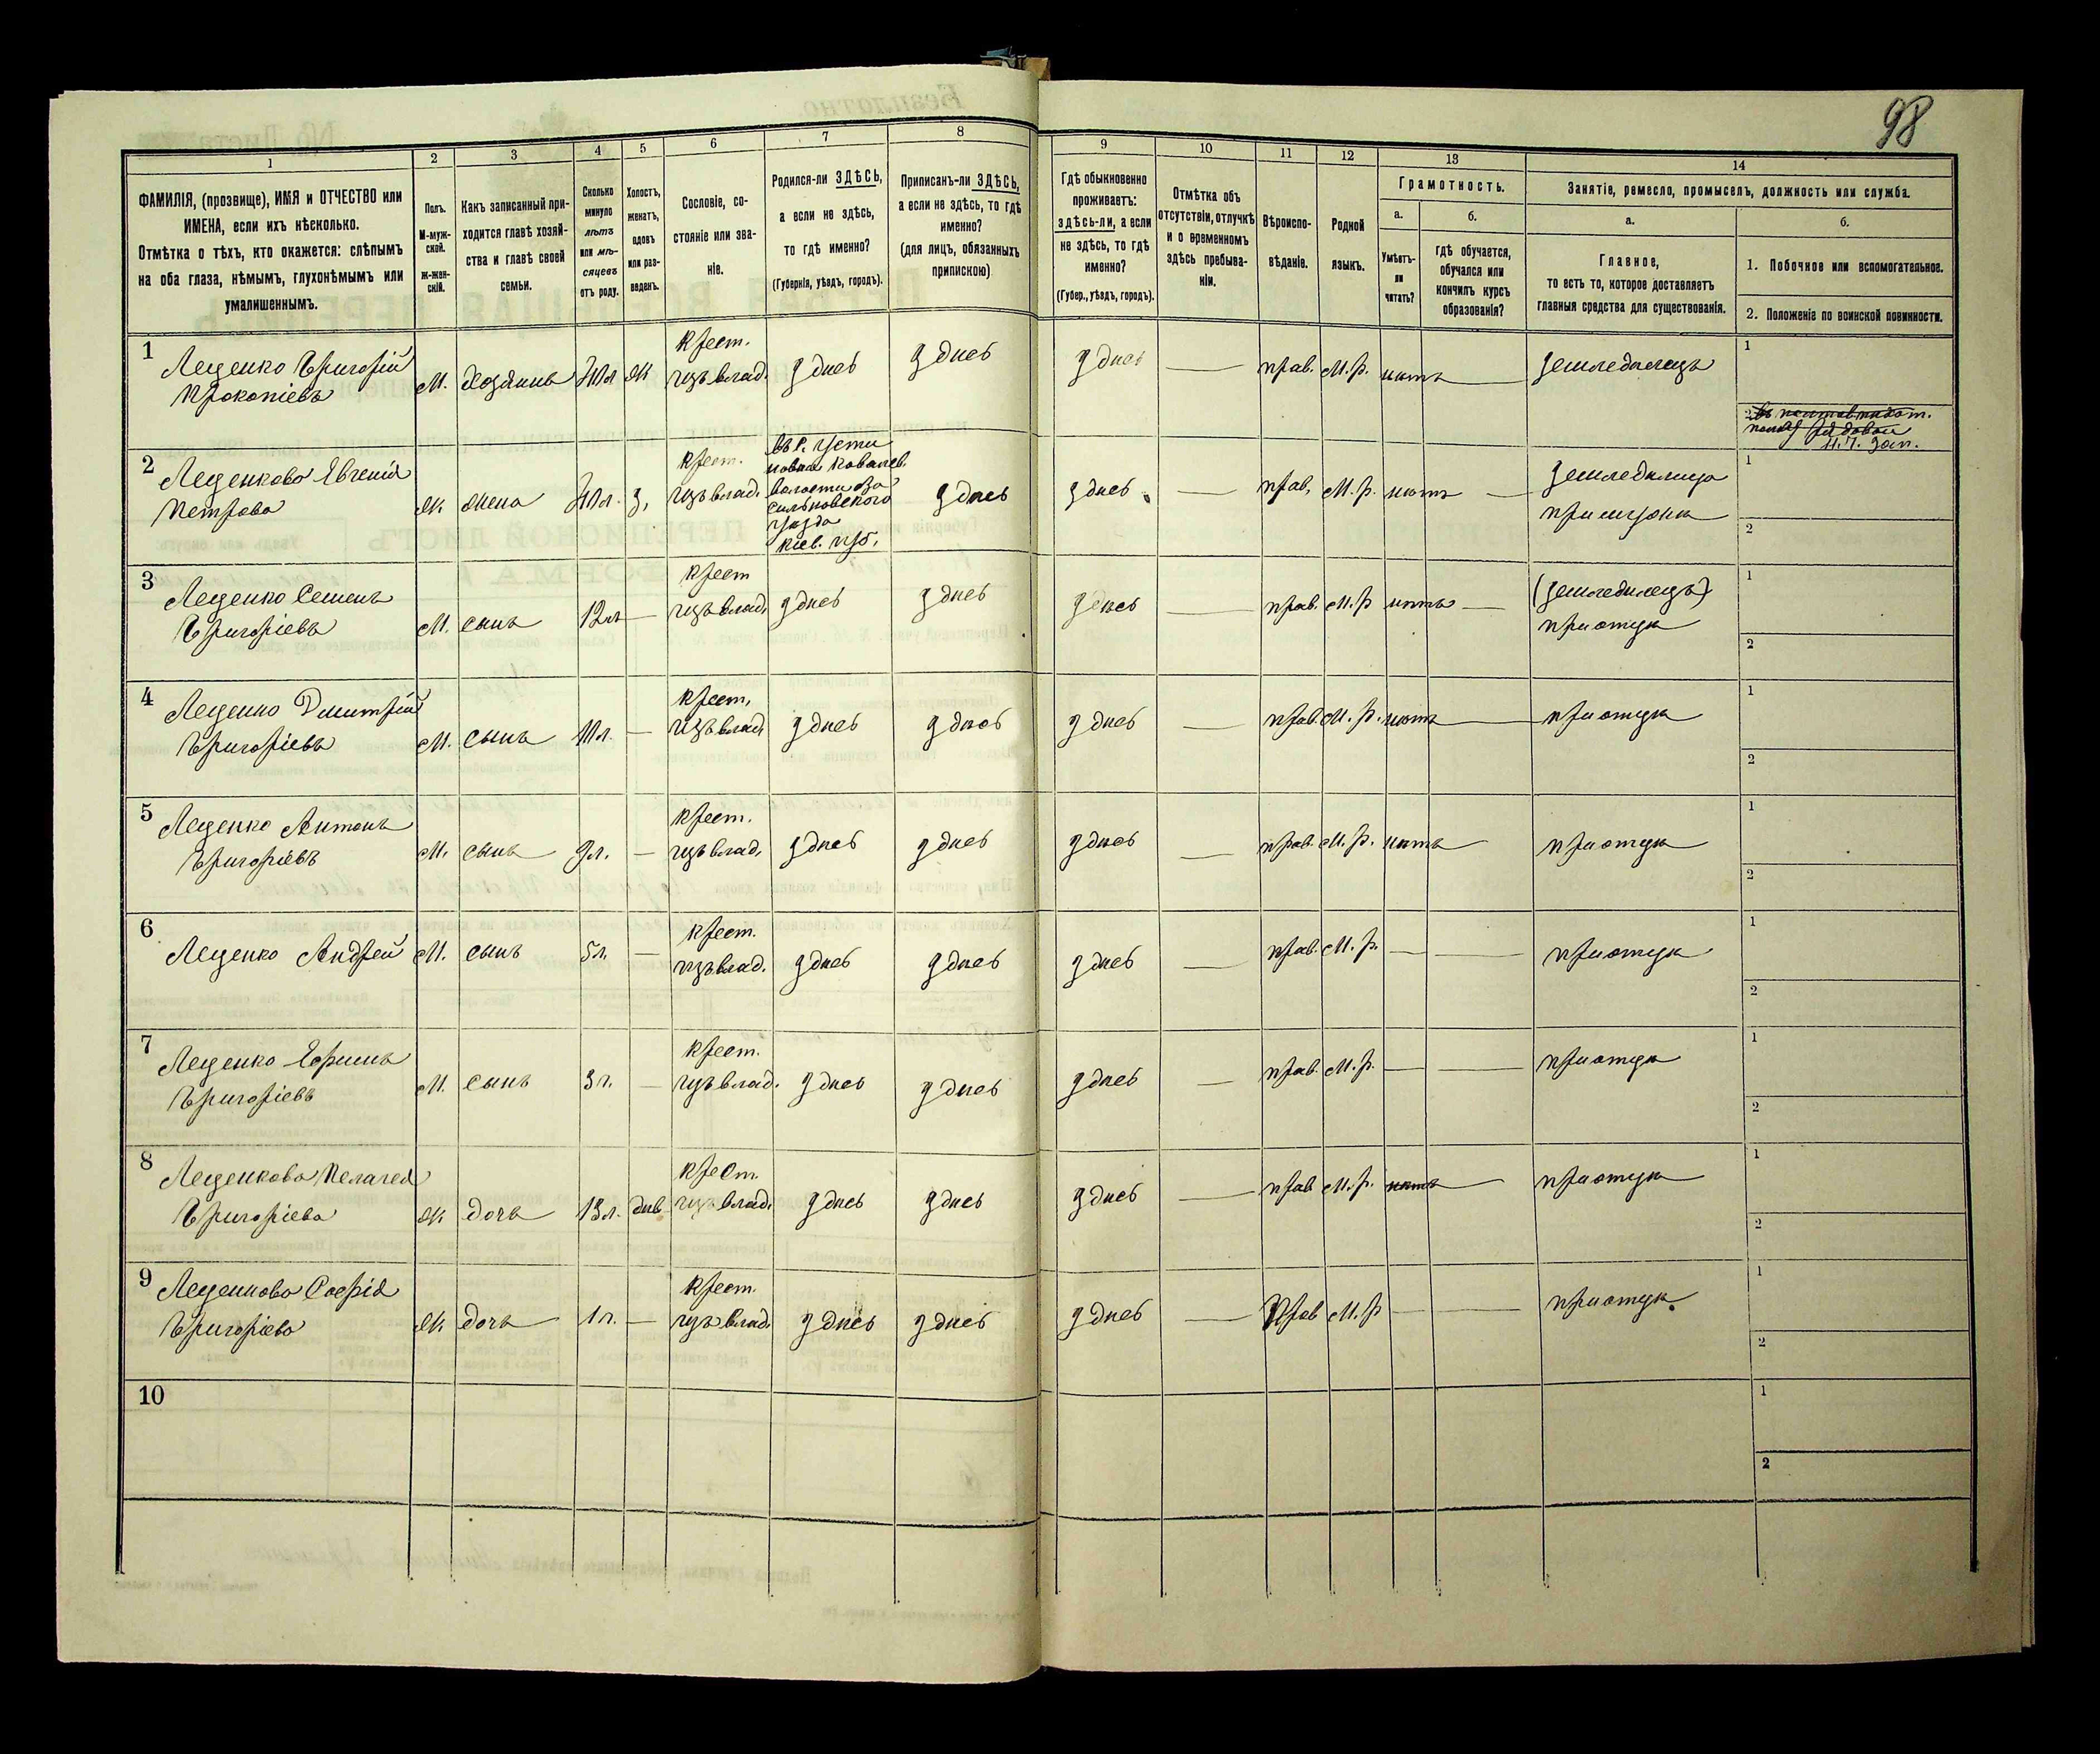 98
1 2 3 4 5 6 7 8 9 10 11 12 13 14
ФАМИЛІЯ, (прозвище), ИМЯ и ОТЧЕСТВО или
ИМЕНА, если ихъ нѣсколько.
Отмѣтка о тѣхъ, кто окажется: слѣпымъ
на оба глаза, нѣмымъ, глухонѣмымъ или
умалишеннымъ.
Полъ.
М-муж-
ской.
Ж-жен-
скій.
Какъ записанный при-
ходится главѣ хозяй-
ства и главѣ своей
семьи.
Сколько
минуло
лѣтъ
или мѣ-
сяцевъ
отъ роду.
Холостъ,
женатъ,
вдовъ
или раз-
веденъ.
Сословіе, со-
стояніе или зва-
ніе.
Родился-ли ЗДѢСЬ,
а если не здѣсь,
то гдѣ именно?
(Губернія, уѣздъ, городъ).
Приписанъ-ли ЗДѢСЬ,
а если не здѣсь, то гдѣ
именно?
(для лицъ, обязанныхъ
припискою)
Гдѣ обыкновенно
проживаетъ:
здѣсь-ли, а если
не здѣсь, то гдѣ
именно?
(Губер., уѣздъ, городъ).
Отмѣтка объ
отсутствіи, отлучкѣ
и о временномъ
здѣсь пребыва-
ніи.
Вѣроиспо-
вѣданіе.
Родной
языкъ.
Грамотность.
а.
Умѣетъ-
ли
читать?
б.
Гдѣ обучается,
обучался или
кончилъ курсъ
образованія?
Занятіе, ремесло, промыселъ, должность или служба.
а.
Главное,
то есть то, которое доставляетъ
главныя средства для существованія.
б.
1. Побочное или вспомогательное.
2. Положеніе по воинской повинности.
1 Леценко Григорій
Прокопіевъ
М. хозяинъ ж
крест.
влад. здѣсь здѣсь здѣсь — прав. М.р. нѣтъ — земледѣлецъ
1
2
зап.
2 Леценкова Евгенія
Петрова
Ж жена з.
крест.
влад.
Ковалев.
волости
сильковского
уѣзда
Кіев. губ.
здѣсь здѣсь — прав. М.р. нѣтъ — земледѣлица
при мужѣ
1
2
3 Леценко Семенъ
Григоріевъ
М. сынъ 12л —
крест
влад. здѣсь здѣсь здѣсь — прав. М.р нѣтъ — (земледѣлецъ)
при отцѣ
1
2
4 Леценко Дмитрій
Григоріевъ
М. сынъ 11л. —
крест.
влад здѣсь здѣсь здѣсь — прав. М.р. нѣтъ — при отцѣ
1
2
5 Леценко Антонъ
Григоріевъ
М. сынъ 9л. —
крест.
влад. здѣсь здѣсь здѣсь — прав. М.р. нѣтъ — при отцѣ
1
2
6 Леценко Андрей М. сынъ 5л. —
крест.
влад. здѣсь здѣсь здѣсь — прав. М.р. — — при отцѣ
1
2
7 Леценко Ефимъ
Григоріевъ
М. сынъ 3л. —
крест.
влад. здѣсь здѣсь здѣсь — прав. М.р. — — при отцѣ
1
2
8 Леценкова Пелагея
Григоріева
Ж дочь 13л. дѣв
крест.
влад. здѣсь здѣсь здѣсь — прав М.р. нѣтъ — при отцѣ
1
2
9 Леценкова Софія
Григоріева
Ж дочь 1л. —
крест.
влад. здѣсь здѣсь здѣсь — прав М.р — — при отцѣ.
1
2
10
1
2